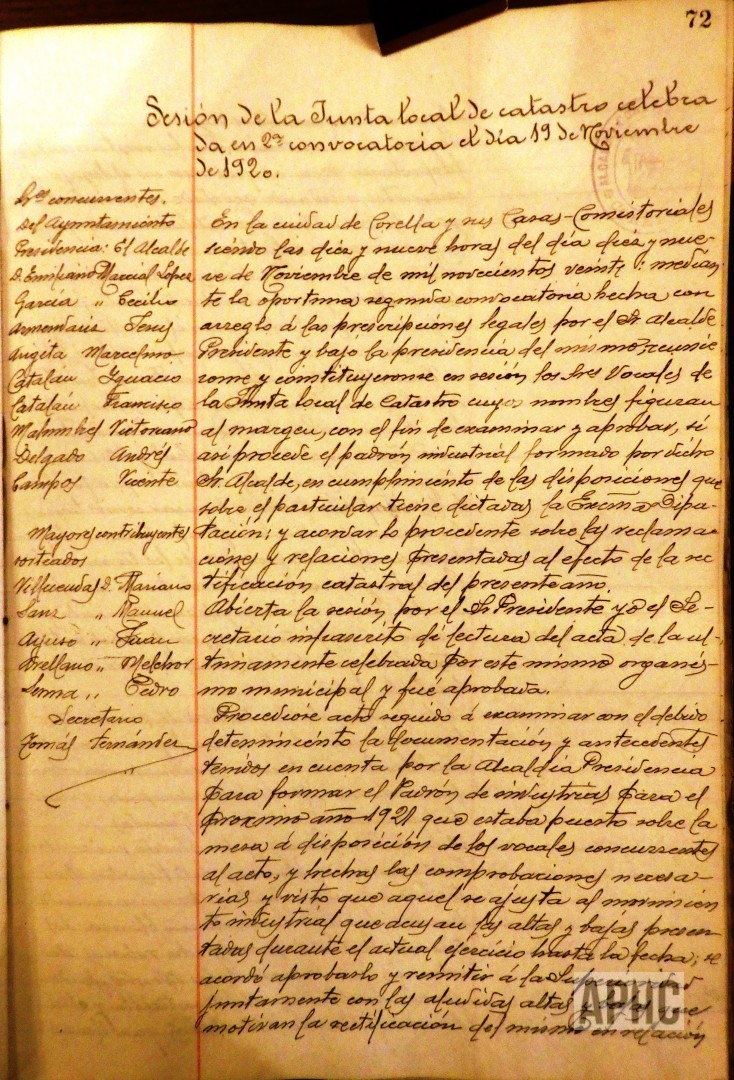 72
Sesión de la Junta local de catastro celebra
da en 2ª convocatoria el día 19 de Noviembre
de 1920.
Sres concurrentes.
Del Ayuntamiento
Presidencia: El Alcalde
D. Emiliano Marcial López
García " Cecilio
Armendariz Jesus
Angita Marcelino
Catalán Ignacio
Catalán Francisco
Malumbres Victoriano
Delgado Andrés
Campos Vicente
Mayores contribuyentes
sorteados
Villacudas D. Mariano
Sanz " Manuel
Ayuso " Juan
Arellano " Melchor
Serma " Pedro
Secretario
Tomás Fernández
En la ciudad de Corella y sus Casas-Consistoriales
siendo las diez y nueve horas del día diez y nue-
ve de Noviembre de mil novecientos veinte: median
te la oportuna segunda convocatoria hecha con
arreglo á las prescripciones legales por el Sr. Alcalde
Presidente y bajo la presidencia del mismo, reunie
ronse y constituyeronse en sesión los Sres Vocales de
la Junta local de Catastro cuyos nombres figuran
al margen, con el fin de examinar y aprobar, si
asi procede el padrón industrial formado por dicho
Sr. Alcalde, en cumplimiento de las disposiciones que
sobre el particular tiene dictadas la Excma Dipu-
tación; y acordar lo procedente sobre las reclama-
ciones y relaciones presentadas al efecto de la rec
tificación catastral del presente año.
Abierta la sesión por el Sr Presidente yo el Se-
cretario infrascrito di lectura del acta de la ul-
timamente celebrada por este mismo organis-
mo municipal y fué aprobada.
Procediose acto seguido á examinar con el debido
detenimiento la documentación y antecedentes
tenidos en cuenta por la Alcaldía Presidencia
para formar el Padrón de industrias para el
proximo año 1921 que estaba puesto sobre la
mesa á disposición de los vocales concurrentes
al acto, y hechas las comprobaciones necesa-
rias y visto que aquel se ajusta al movimien
to industrial que acusan las altas y bajas presen
tadas durante el actual ejercicio hasta la fecha; se
acordó aprobarlo y remitir á la
juntamente con las aludidas altas y bajas que
motivan la rectificación del mismo en relación
APHC